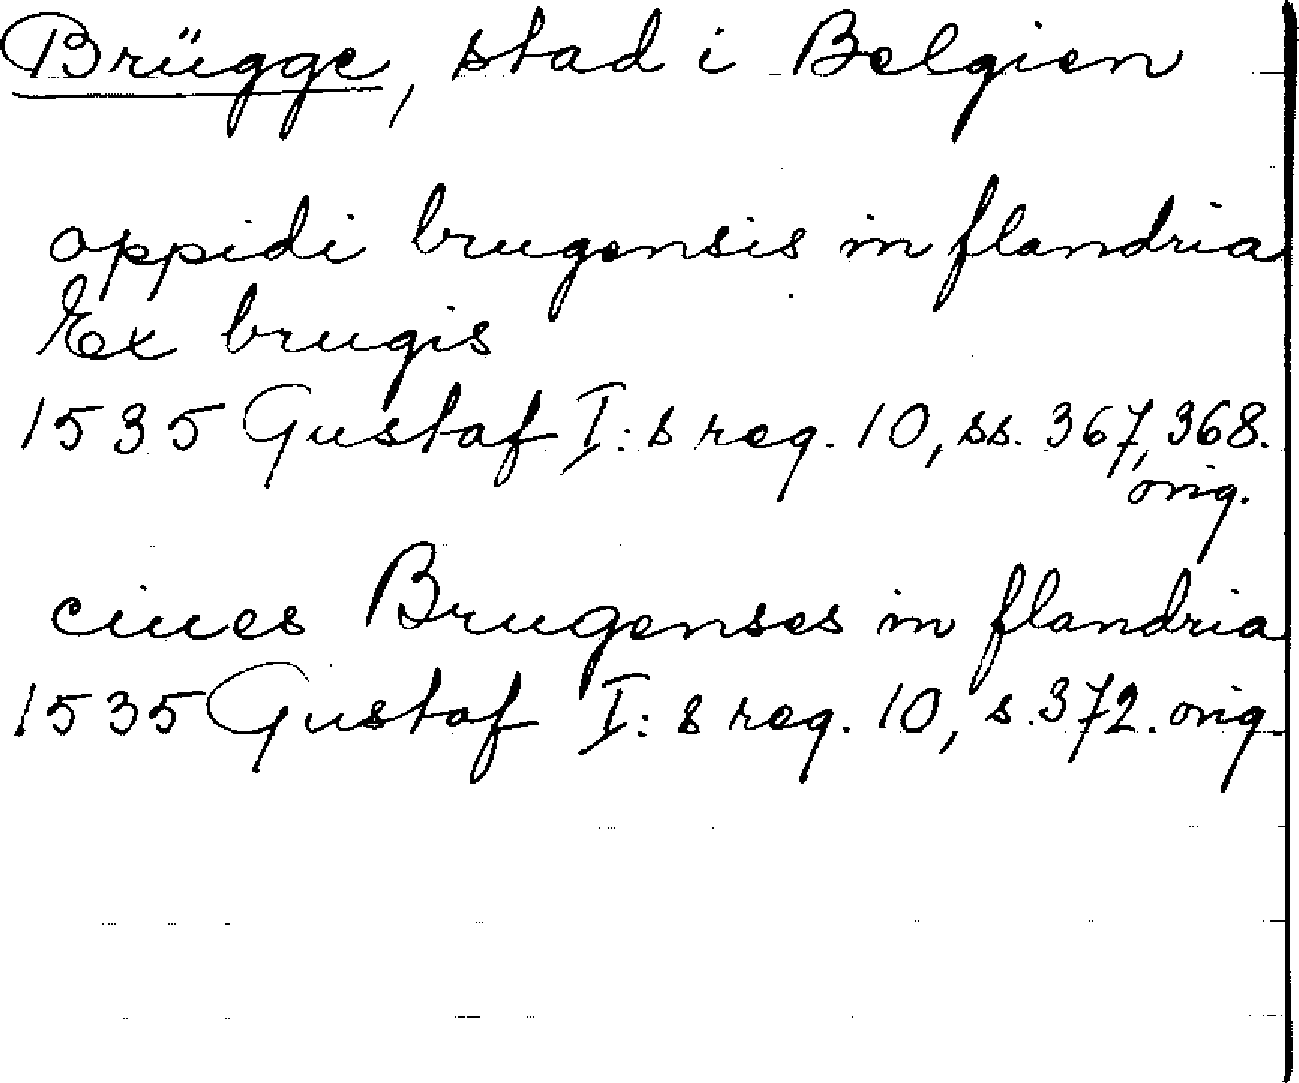 Brügge, stad i Belgien
oppidi brugensis in flandria
Ex brugis
1535 Gustaf I:s reg. 10, ss. 367, 368.
orig.
ciues Brugenses in flandria
1535 Gustaf I:s reg. 10, s. 372. orig